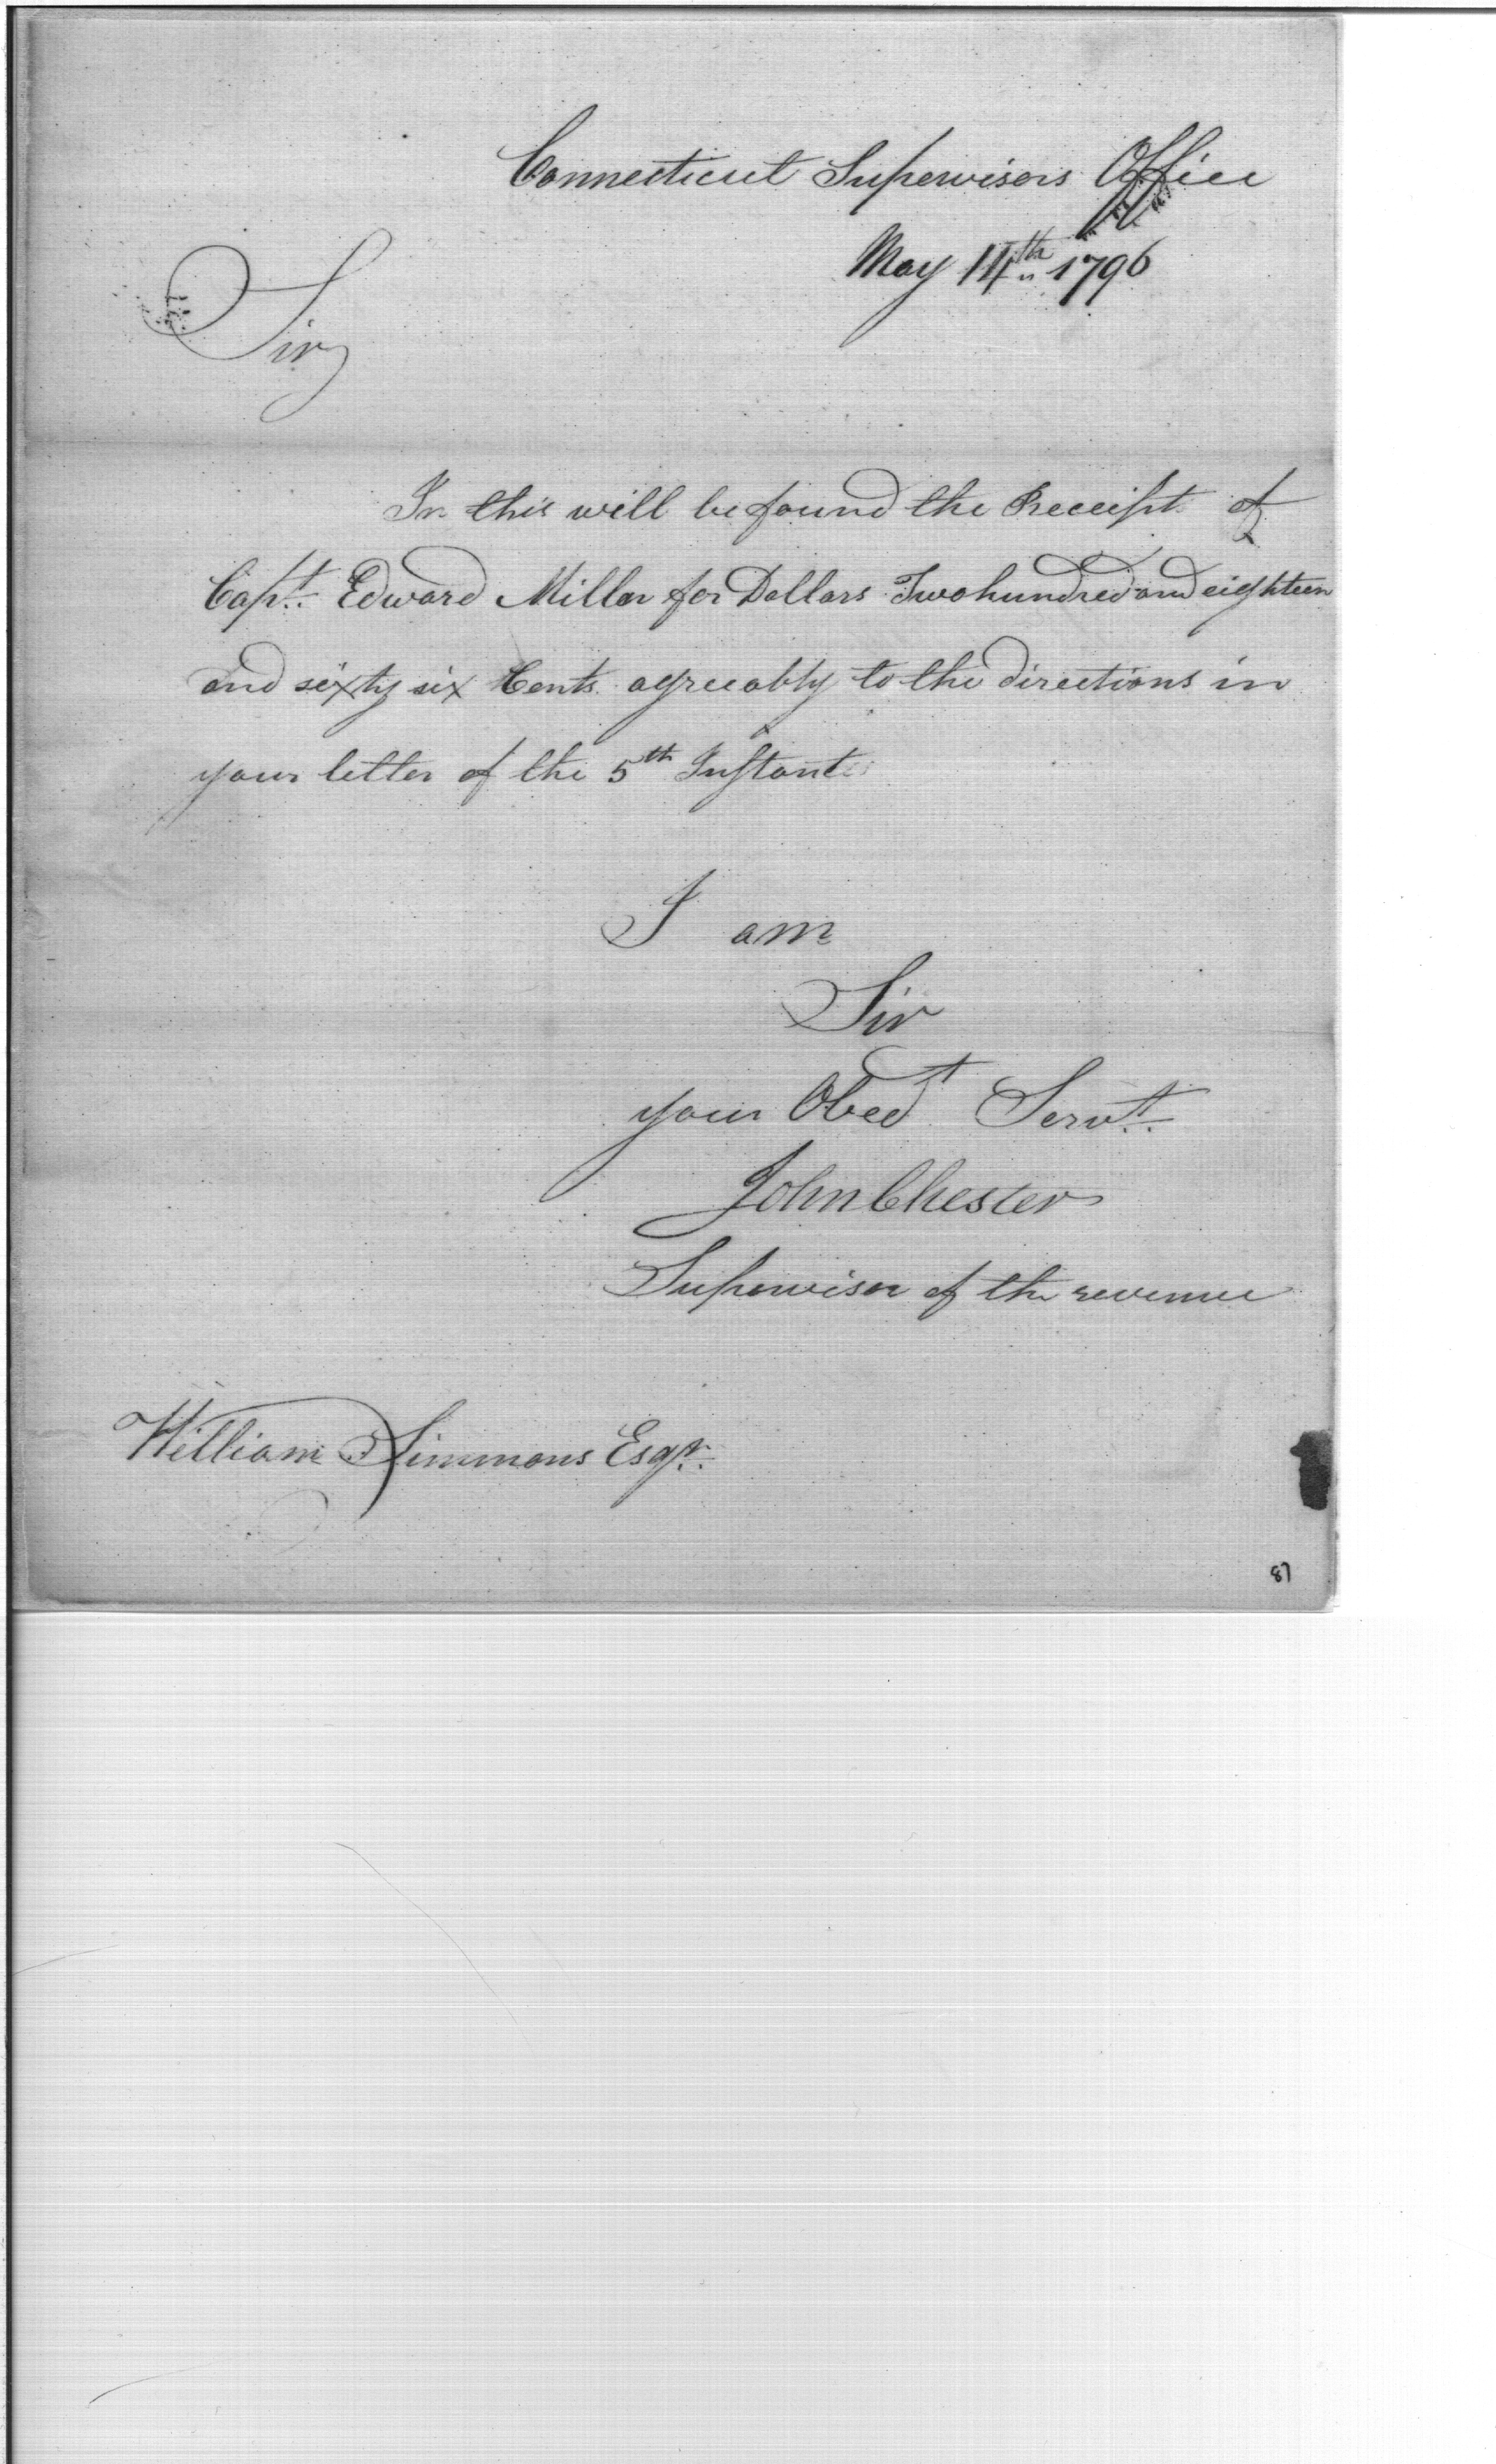 Connecticut Supervisors Office
May 14th 1796
Sir,
In this will be found the Receipt of
Capt. Edward Miller for Dollars Two hundred and eighteen
and sixty six Cents agreeably to the directions in
your letter of the 5th Instant
I am
Sir
your Obedt Servt.
John Chester
Supervisor of the revenue
William Simmons Esqr.
87